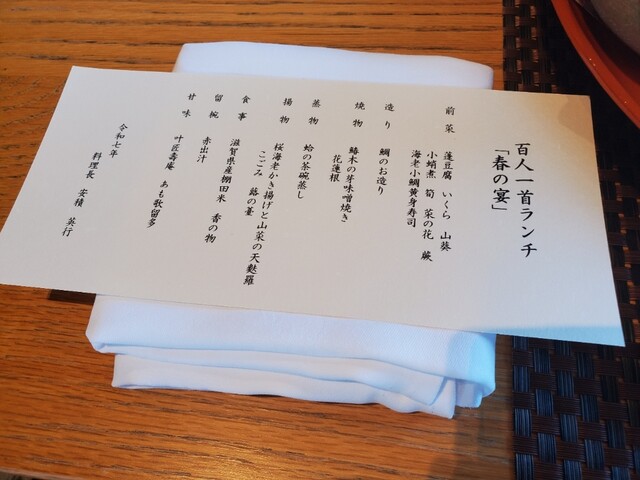 百人一首ランチ
「春の宴」
前菜　蓬豆腐　いくら　山葵
小蛸煮　筍　菜の花　蕨
海老小鯛黄身寿司
造り　鯛のお造り
焼物　鰆木の芽味噌焼き
花蓮根
蒸物　蛤の茶碗蒸し
揚物　桜海老かき揚げと山菜の天麩羅
こごみ　蕗の薹
食事　滋賀県産棚田米　香の物
留椀　赤出汁
甘味　叶匠壽庵　あも歌留多
令和七年
料理長　安積　英行